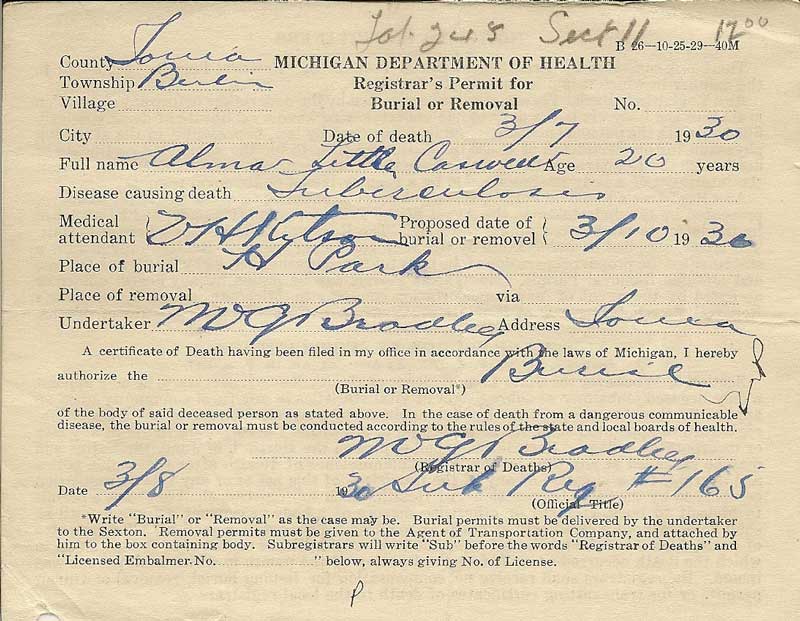 Lot 248 Sect 11 12 00
B 26—10-25-29—40M
County Ionia MICHIGAN DEPARTMENT OF HEALTH
Township Berlin Registrar's Permit for
Village Burial or Removal No.
City Date of death 3/7 1930
Full name Alma Little Caswell Age 20 years
Disease causing death Tuberculosis
Medical attendant Proposed date of burial or removel 3/10 1930
Place of burial H Park
Place of removal via
Undertaker M G Bradley Address Ionia
A certificate of Death having been filed in my office in accordance with the laws of Michigan, I hereby
authorize the Burial
(Burial or Removal*)
of the body of said deceased person as stated above. In the case of death from a dangerous communicable
disease, the burial or removal must be conducted according to the rules of the state and local boards of health.
M G Bradley
(Registrar of Deaths)
Date 3/8 1930 Sub Reg #165
(Official Title)
*Write "Burial" or "Removal" as the case may be. Burial permits must be delivered by the undertaker
to the Sexton. Removal permits must be given to the Agent of Transportation Company, and attached by
him to the box containing body. Subregistrars will write "Sub" before the words "Registrar of Deaths" and
"Licensed Embalmer. No. " below, always giving No. of License.